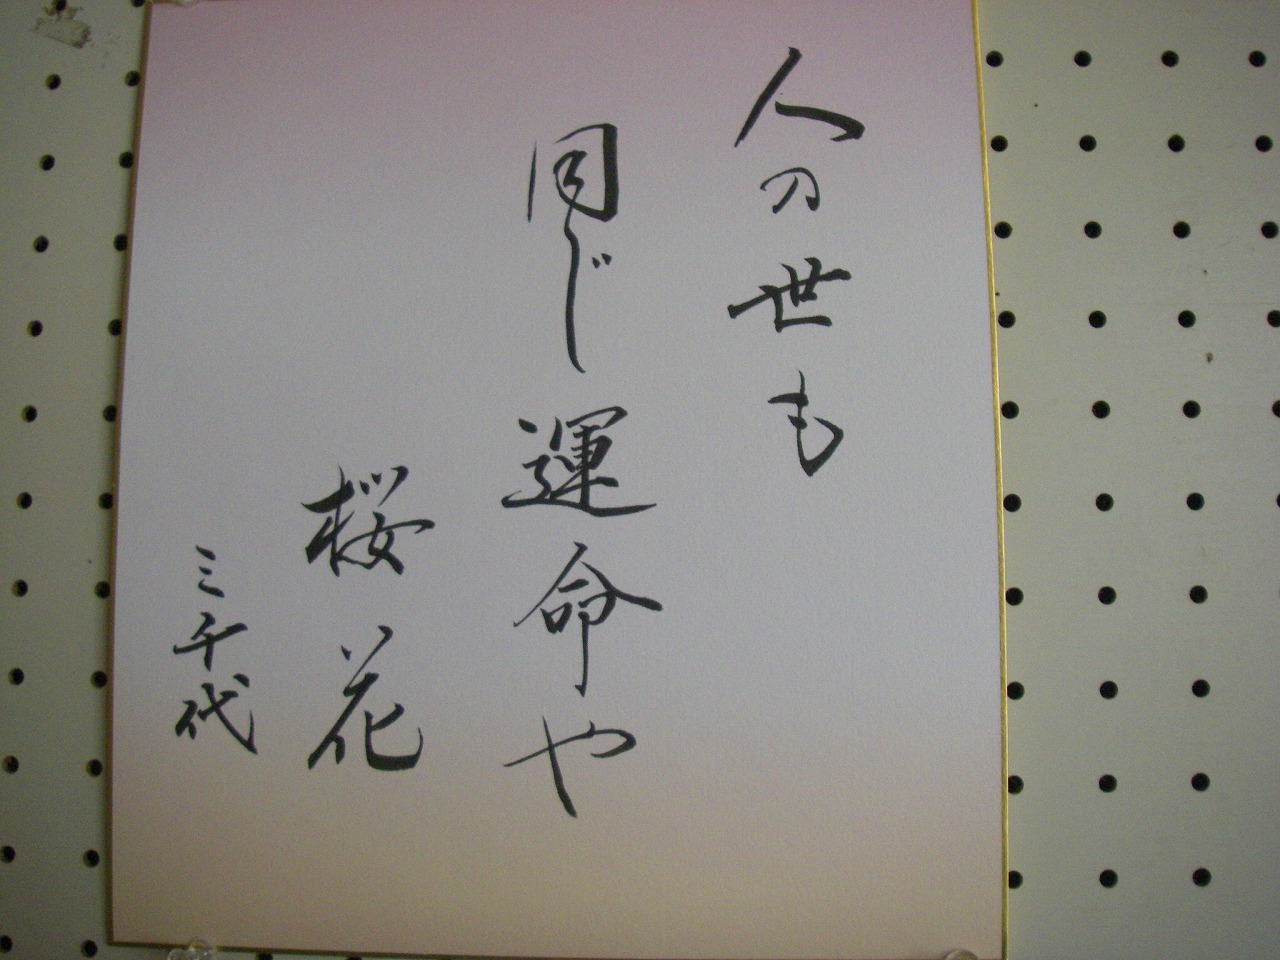 人の世も
同じ運命や
桜花
三千代